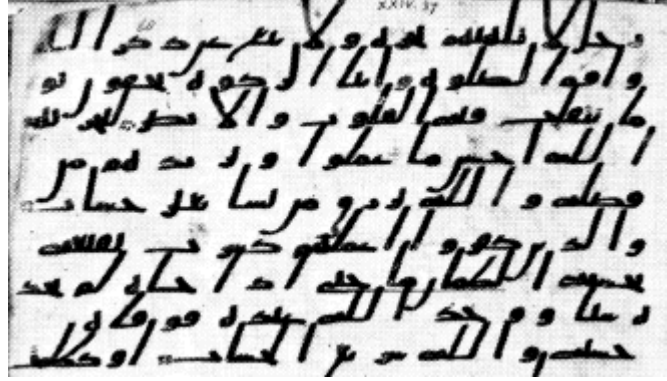 XXIV. 37
رجل لا تلهيهم تجره ولا بيع عن ذكر الله
واقم الصلوه وايتا الزكوه يخفون يو
ما تتقلب فيه القلوب والابصر ليجزيهم
الله احسن ما عملوا ويزيدهم من
فضله والله يرزق من يشا بغير حساب
والذين كفروا اعملهم كسرب بقيعه
يحسبه الظمان ما حتى اذا جاه لم يجد
ه شيا ووجد الله عنده فوفه
حسبه والله سريع الحساب او كظلمت